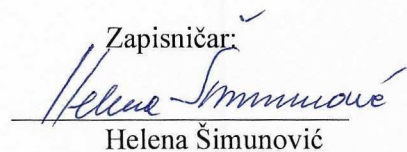 Zapisničar:
Helena Šimunović
Helena Šimunović